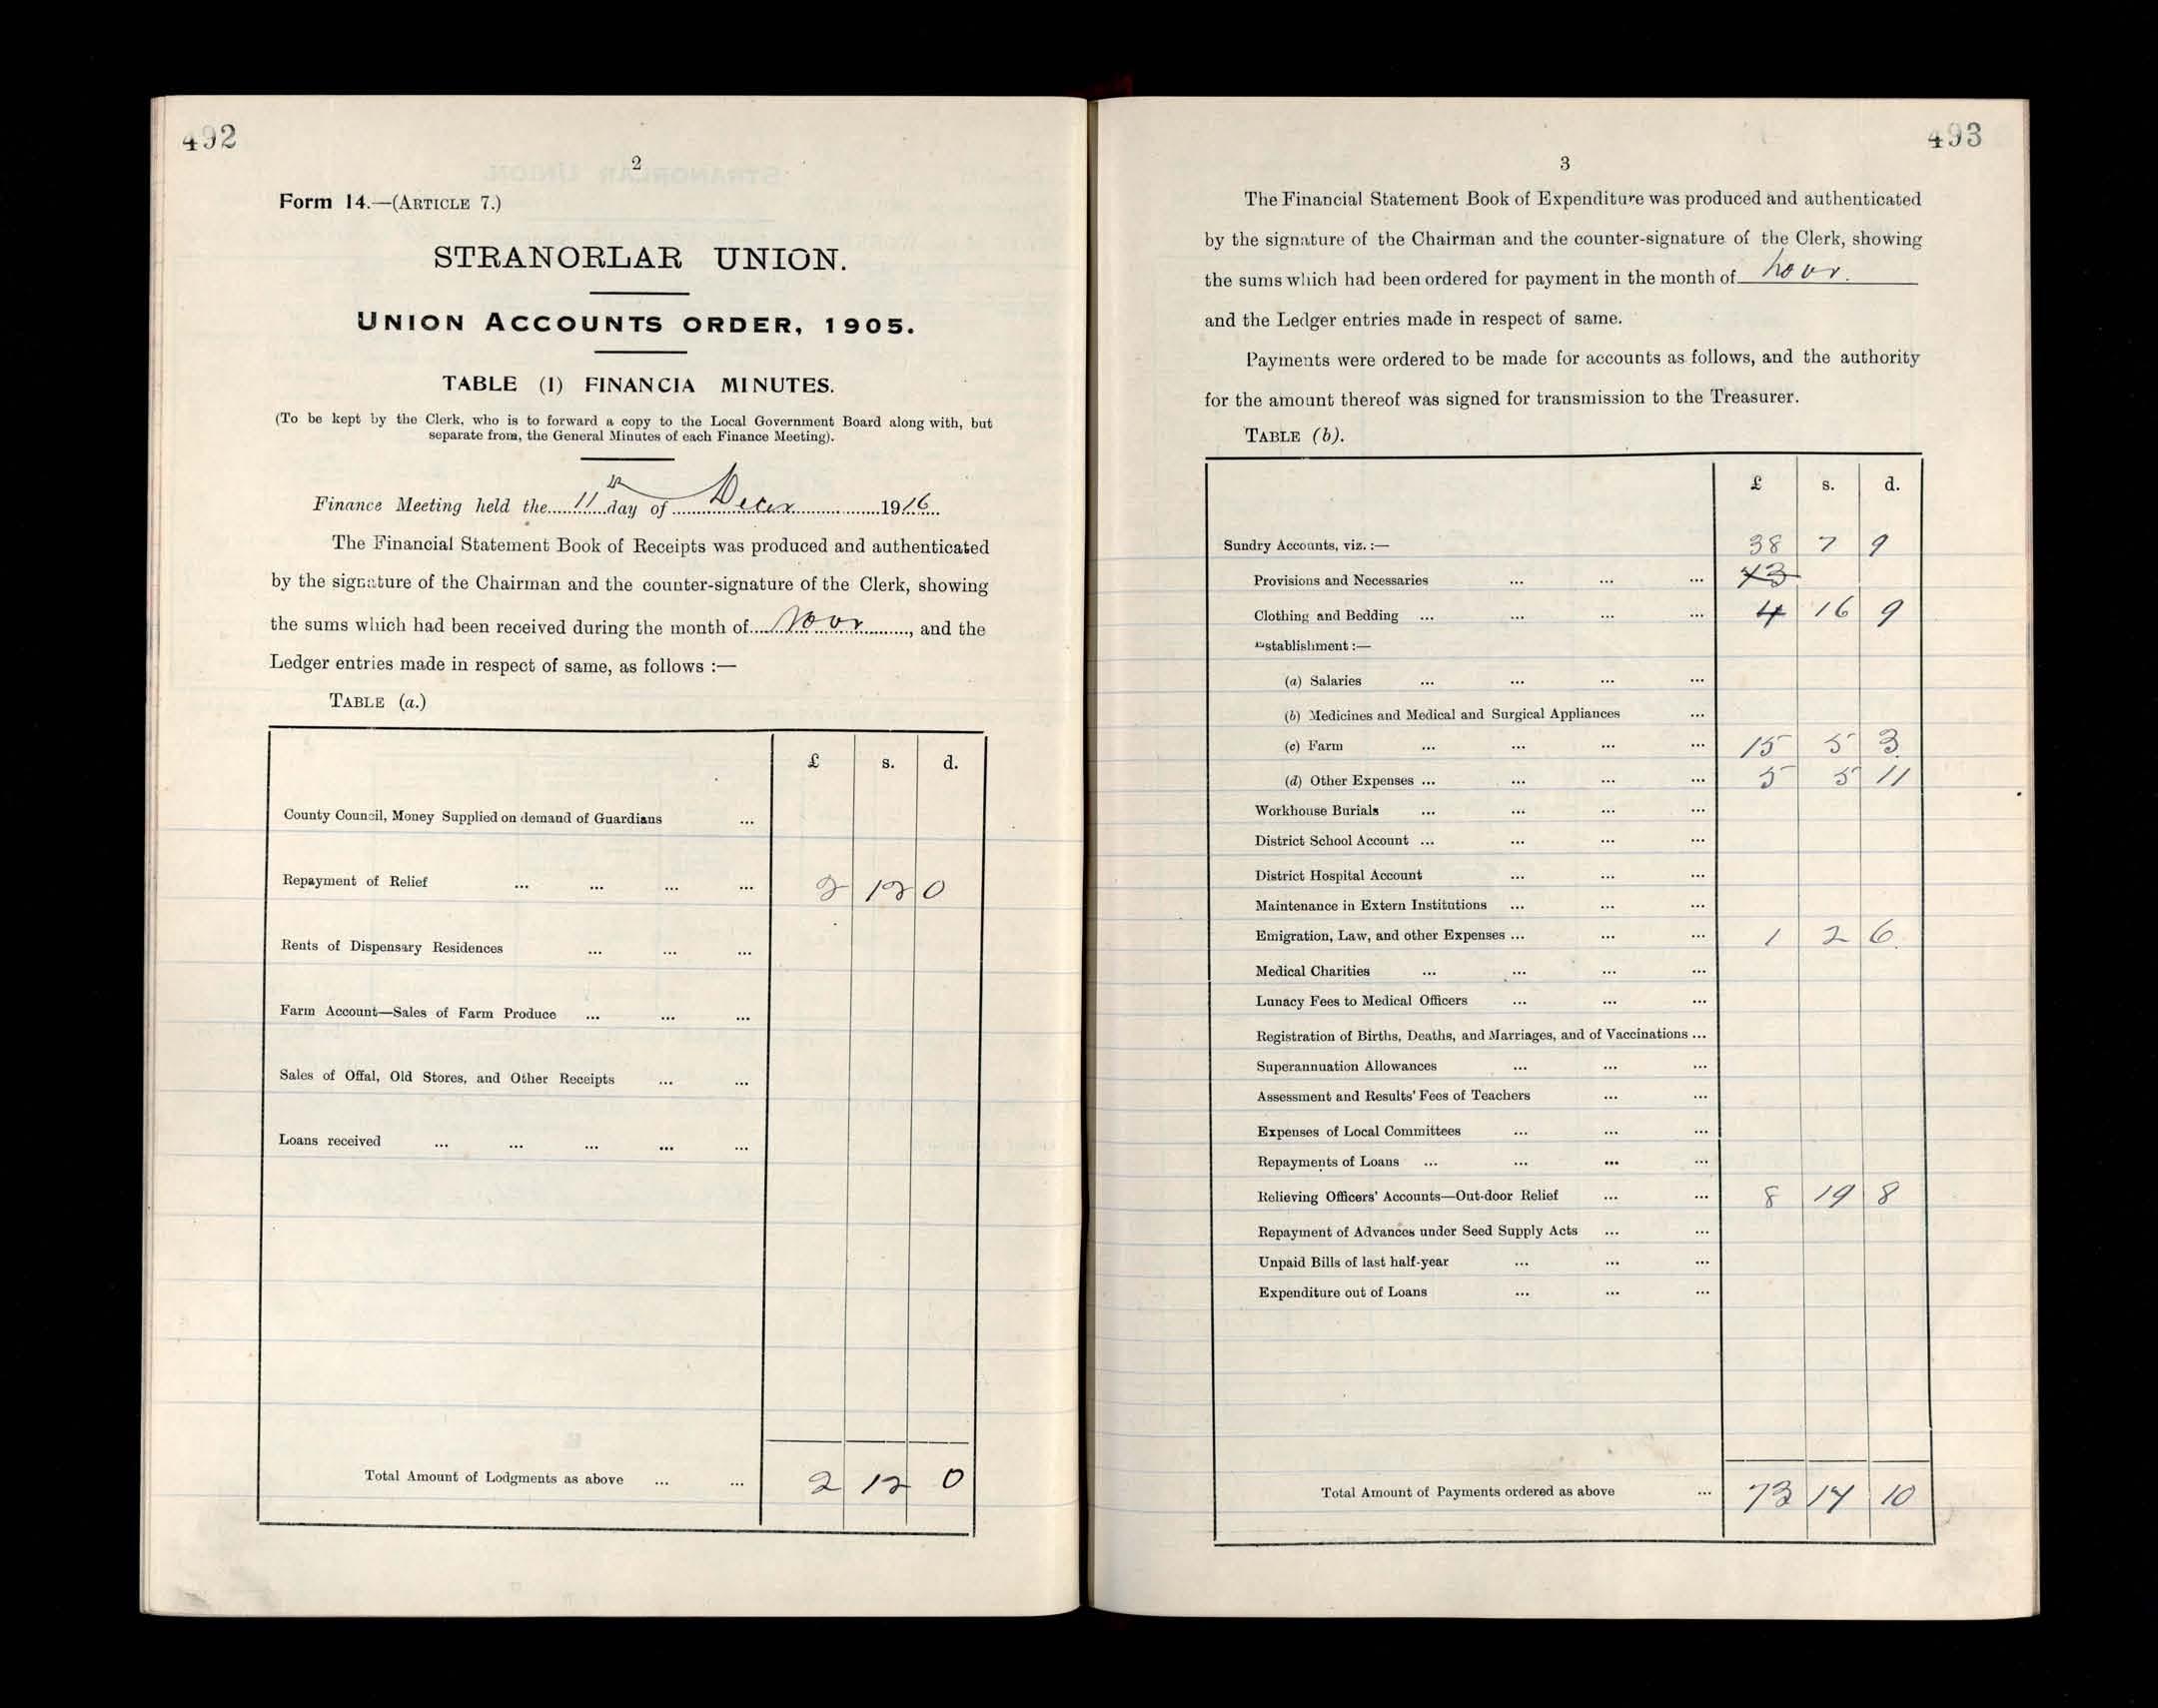 492
2
Form 14.—(ARTICLE 7.)
STRANORLAR UNION.
UNION ACCOUNTS ORDER, 1905.
TABLE (1) FINANCIA MINUTES.
(To be kept by the Clerk, who is to forward a copy to the Local Government Board along with, but
separate from, the General Minutes of each Finance Meeting).
Finance Meeting held the 11th day of Decer 1916
The Financial Statement Book of Receipts was produced and authenticated
by the signature of the Chairman and the counter-signature of the Clerk, showing
the sums which had been received during the month of Novr, and the
Ledger entries made in respect of same, as follows :—
TABLE (a.)
£ s. d.
County Council, Money Supplied on demand of Guardians ...
Repayment of Relief ... ... ... ... 2 12 0
Rents of Dispensary Residences ... ... ...
Farm Account—Sales of Farm Produce ... ... ...
Sales of Offal, Old Stores, and Other Receipts ... ...
Loans received ... ... ... ... ...
Total Amount of Lodgments as above ... ... 2 12 0
493
3
The Financial Statement Book of Expenditure was produced and authenticated
by the signature of the Chairman and the counter-signature of the Clerk, showing
the sums which had been ordered for payment in the month of Novr.
and the Ledger entries made in respect of same.
Payments were ordered to be made for accounts as follows, and the authority
for the amount thereof was signed for transmission to the Treasurer.
TABLE (b).
£ s. d.
Sundry Accounts, viz. :— 38 7 9
Provisions and Necessaries ... ... ...
Clothing and Bedding ... ... ... ... 4 16 9
Establishment :—
(a) Salaries ... ... ... ...
(b) Medicines and Medical and Surgical Appliances ...
(c) Farm ... ... ... ... 15 5 3
(d) Other Expenses ... ... ... ... 5 5 11
Workhouse Burials ... ... ... ...
District School Account ... ... ... ...
District Hospital Account ... ... ...
Maintenance in Extern Institutions ... ... ...
Emigration, Law, and other Expenses ... ... ... 1 2 6
Medical Charities ... ... ... ...
Lunacy Fees to Medical Officers ... ... ...
Registration of Births, Deaths, and Marriages, and of Vaccinations ...
Superannuation Allowances ... ... ...
Assessment and Results' Fees of Teachers ... ...
Expenses of Local Committees ... ... ...
Repayments of Loans ... ... ... ...
Relieving Officers' Accounts—Out-door Relief ... ... 8 19 8
Repayment of Advances under Seed Supply Acts ... ...
Unpaid Bills of last half-year ... ... ...
Expenditure out of Loans ... ... ...
Total Amount of Payments ordered as above ... 73 17 10